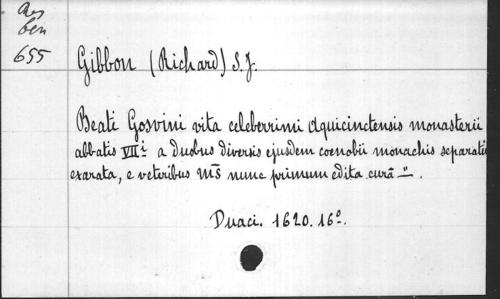 Res
ben
655
Gibbon (Richard) S.J.
Beati Gosvini vita celeberrimi Aquicinctensis monasterii
abbatis VII i a duobus diversis ejusdem coenobii monachis separatim
exarata, e veteribus m̄s nunc primum edita curā ".
Duaci. 1620. 16°.